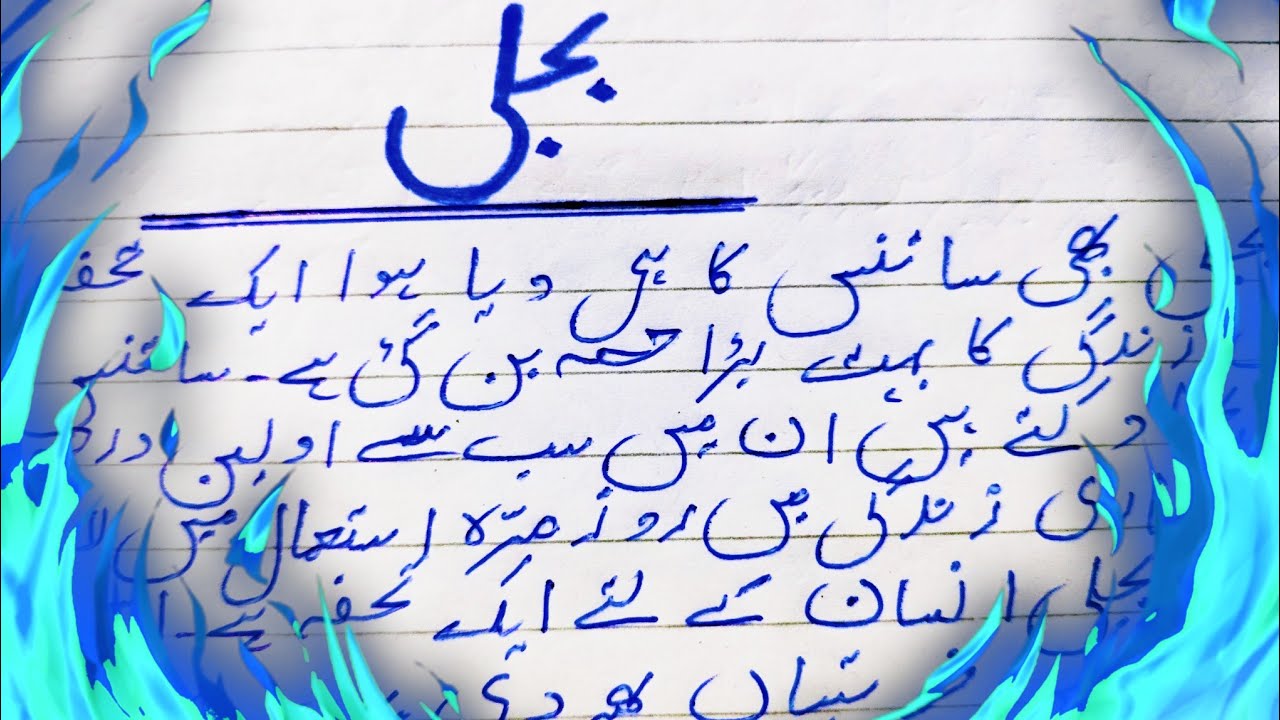 بجلی
بجلی بھی سائنس کا ہی دیا ہوا ایک تحفہ
زندگی کا بہت بڑا حصہ بن گئ ہے۔ سائنس
دلئے ہیں ان میں سب سے اولین
زندگی میں روز مرّہ استعمال میں
بجلی انسان کے لئے ایک تحفہ ہے۔
بھی دی